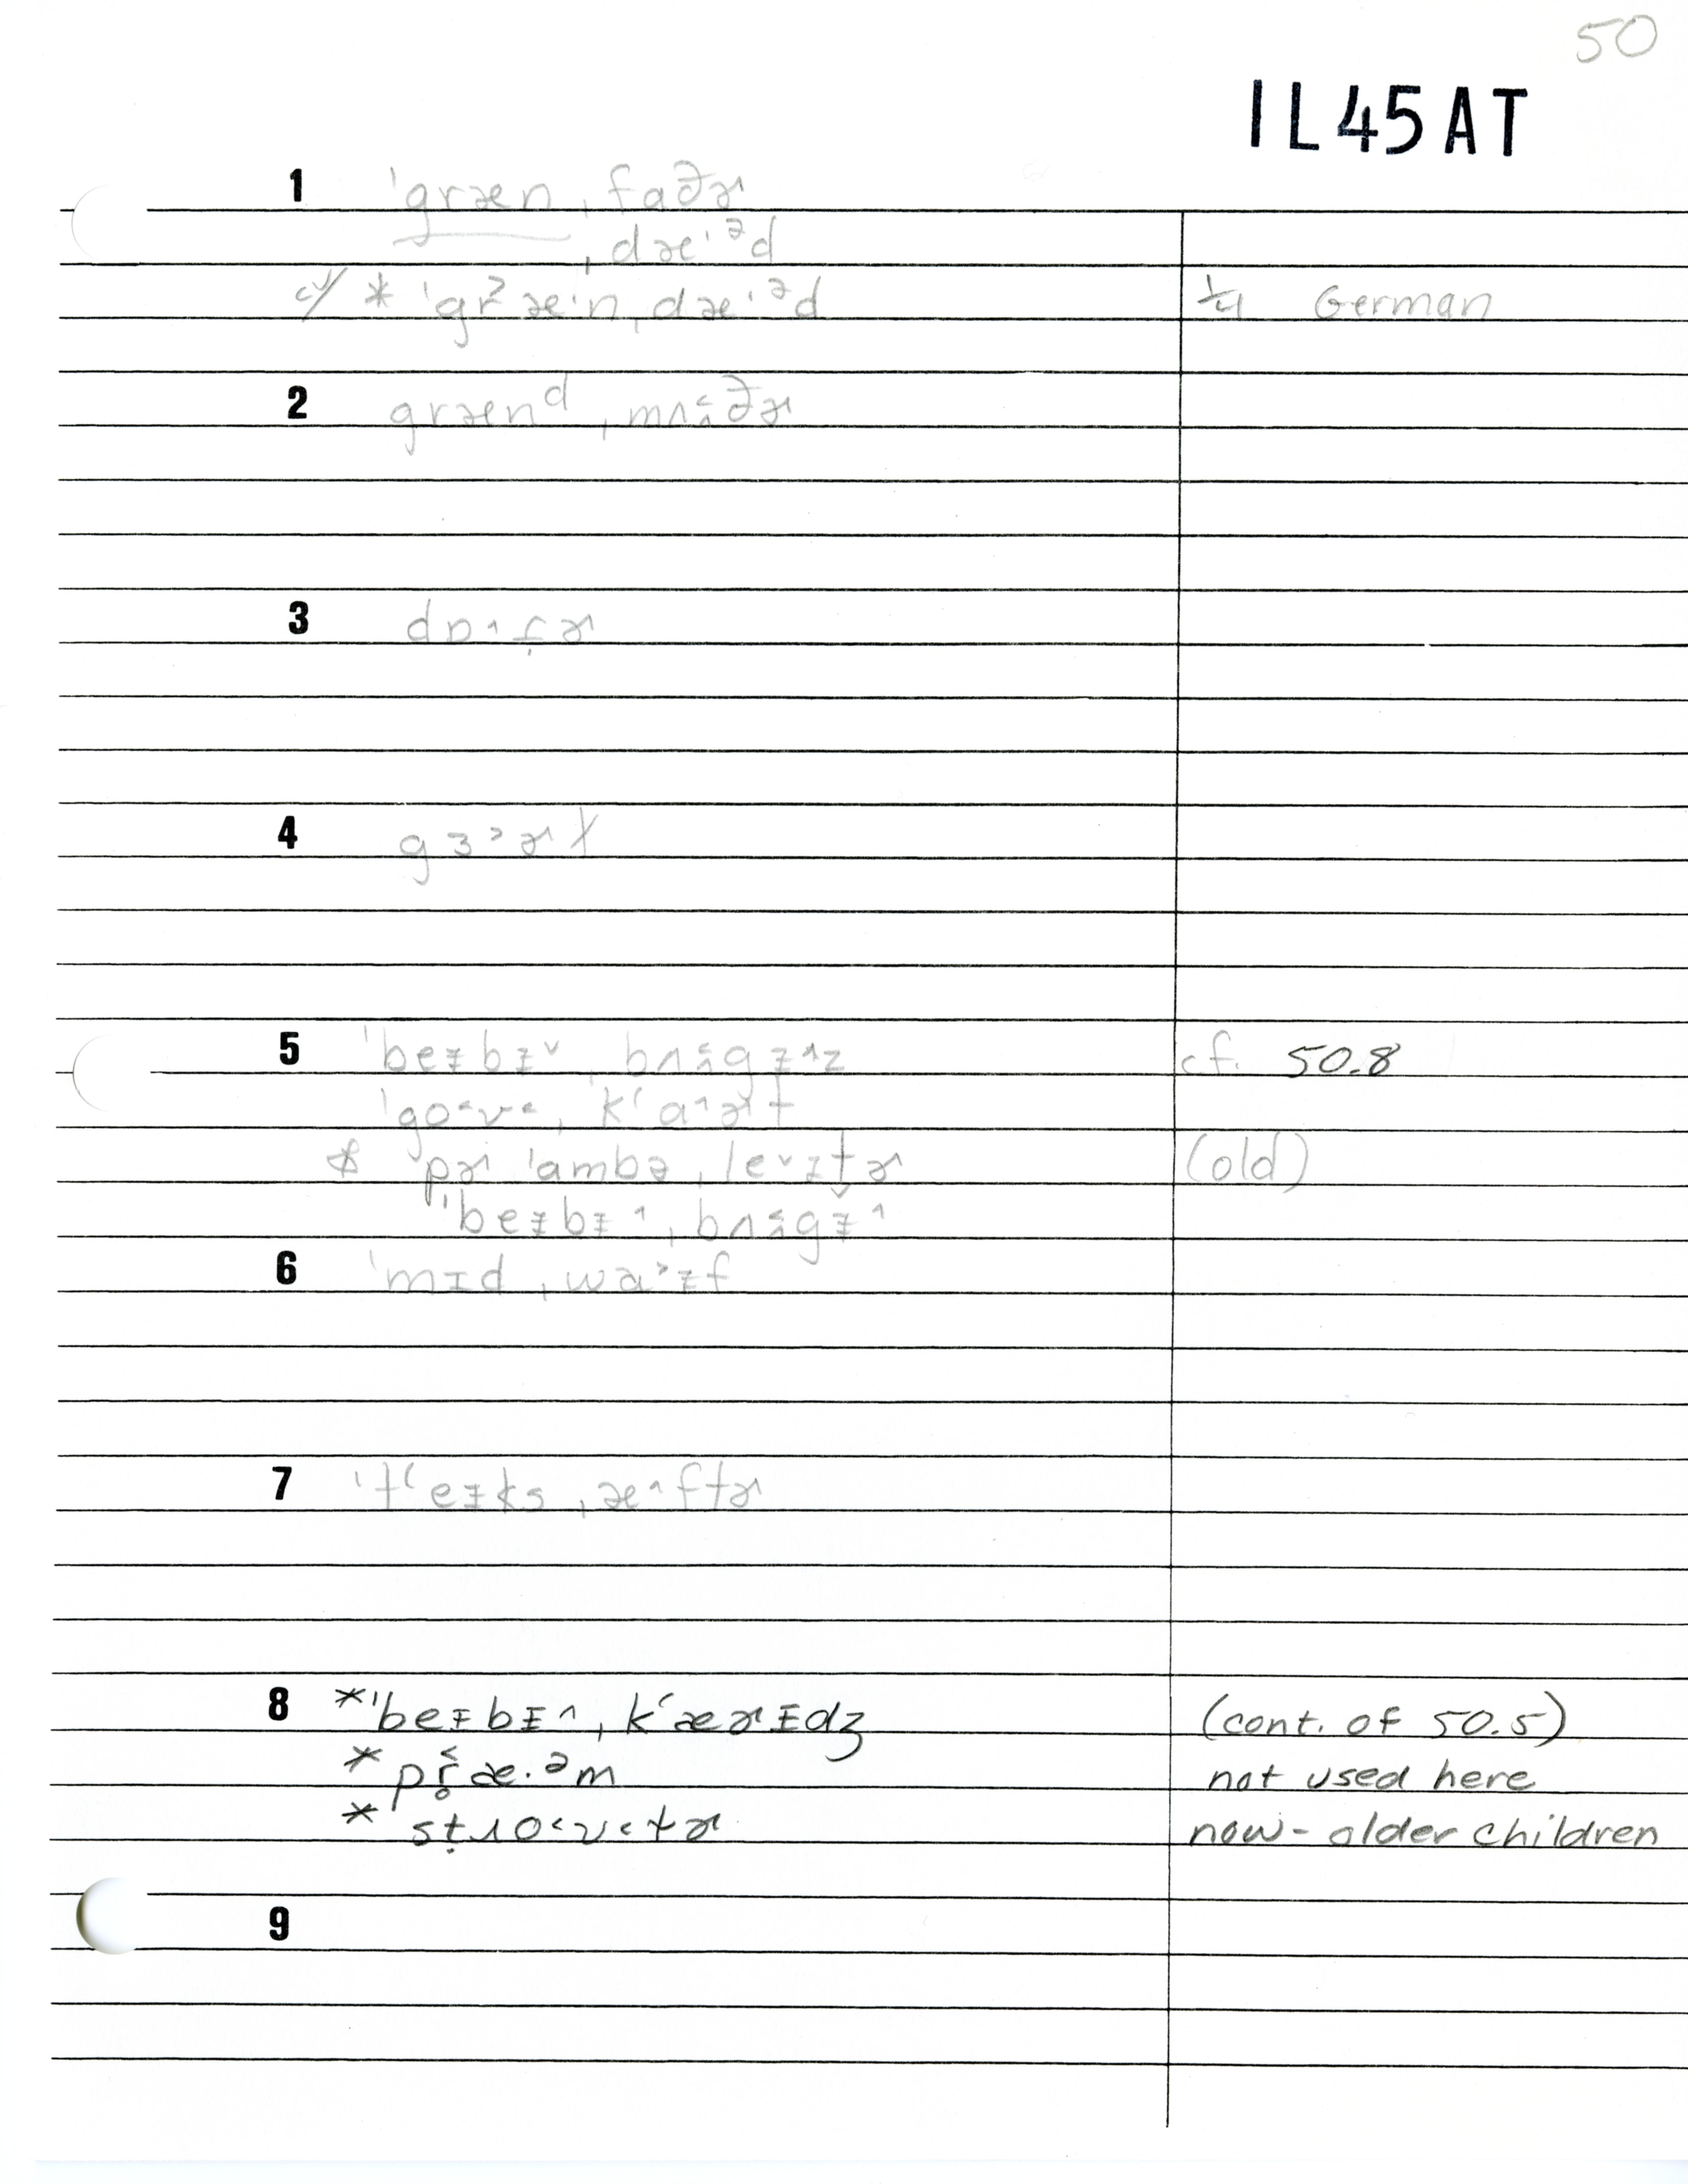 50
IL45AT
1 ˈgræn ˌfaðɚ
ˌdæ·ᵊd
c/ * ˈgrˀæ·nˌdæ·ᵊd ¼ German
2 grænᵈ ˌmʌðɚ
3 dɒ˄t̬ɚ
4 gɜ˃ɚɫ
5 ˈbeɪbɪ˅ ˌbʌgɪ˄z cf. 50.8
ˈgo˂ʊ˂ ˌkʻɑ˄ɚt
* pɚˈambəˌle˅ɪtɚ (old)
"beɪbɪ˄ ˌbʌgɪ˄
6 ˈmɪd ˌwa˃ɪf
7 ˈtʻeɪks ˌæ˄ftɚ
8 *"beɪbɪ˄ ˌkʻæɚɪdʒ (cont. of 50.5)
* pr̥æ·ᵊm not used here
* stɹo˂ʊ˂tɚ now - older children
9